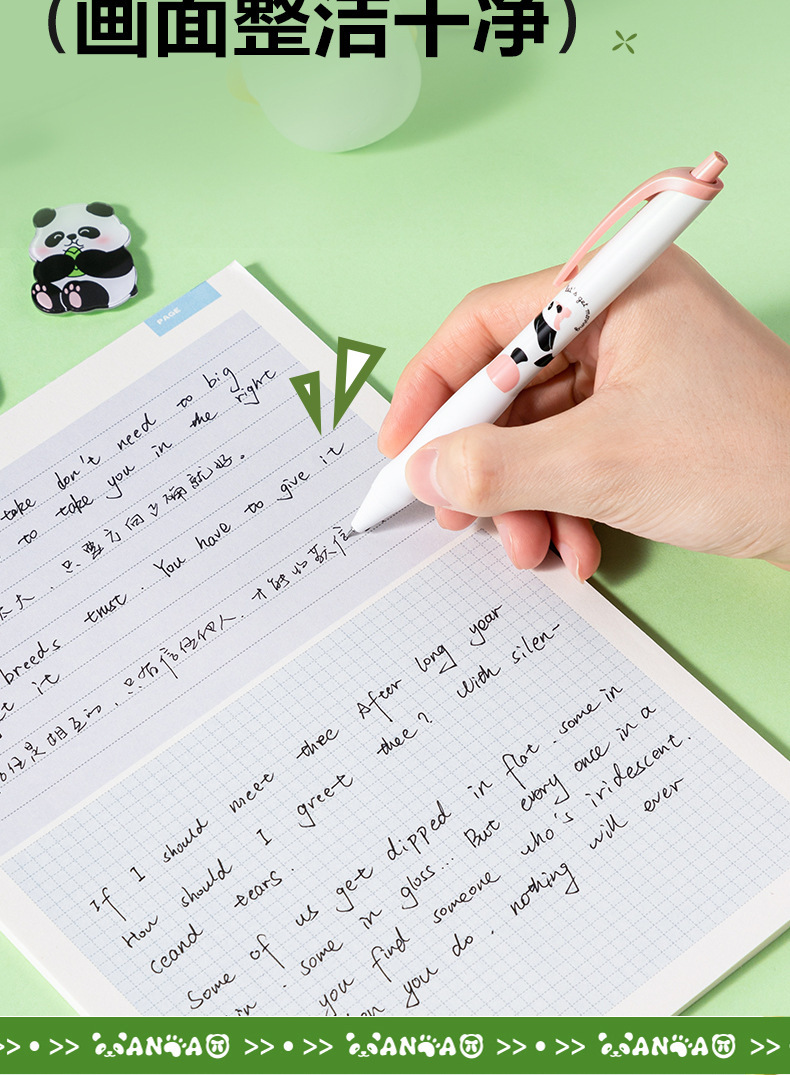 （画面整洁干净）
PAGE
take don't need to big
to take you in the right
太大，只要方向正确就好。
breeds trust. You have to give it
t it
信任是相互的，只有信任他人，才能收获信
If I should meet thee After long year
How should I greet thee? With silen-
ceand tears.
Some of us get dipped in flat. some in
in. some in gloss... But every once in a
you find someone who's iridescent.
en you do. nothing will ever